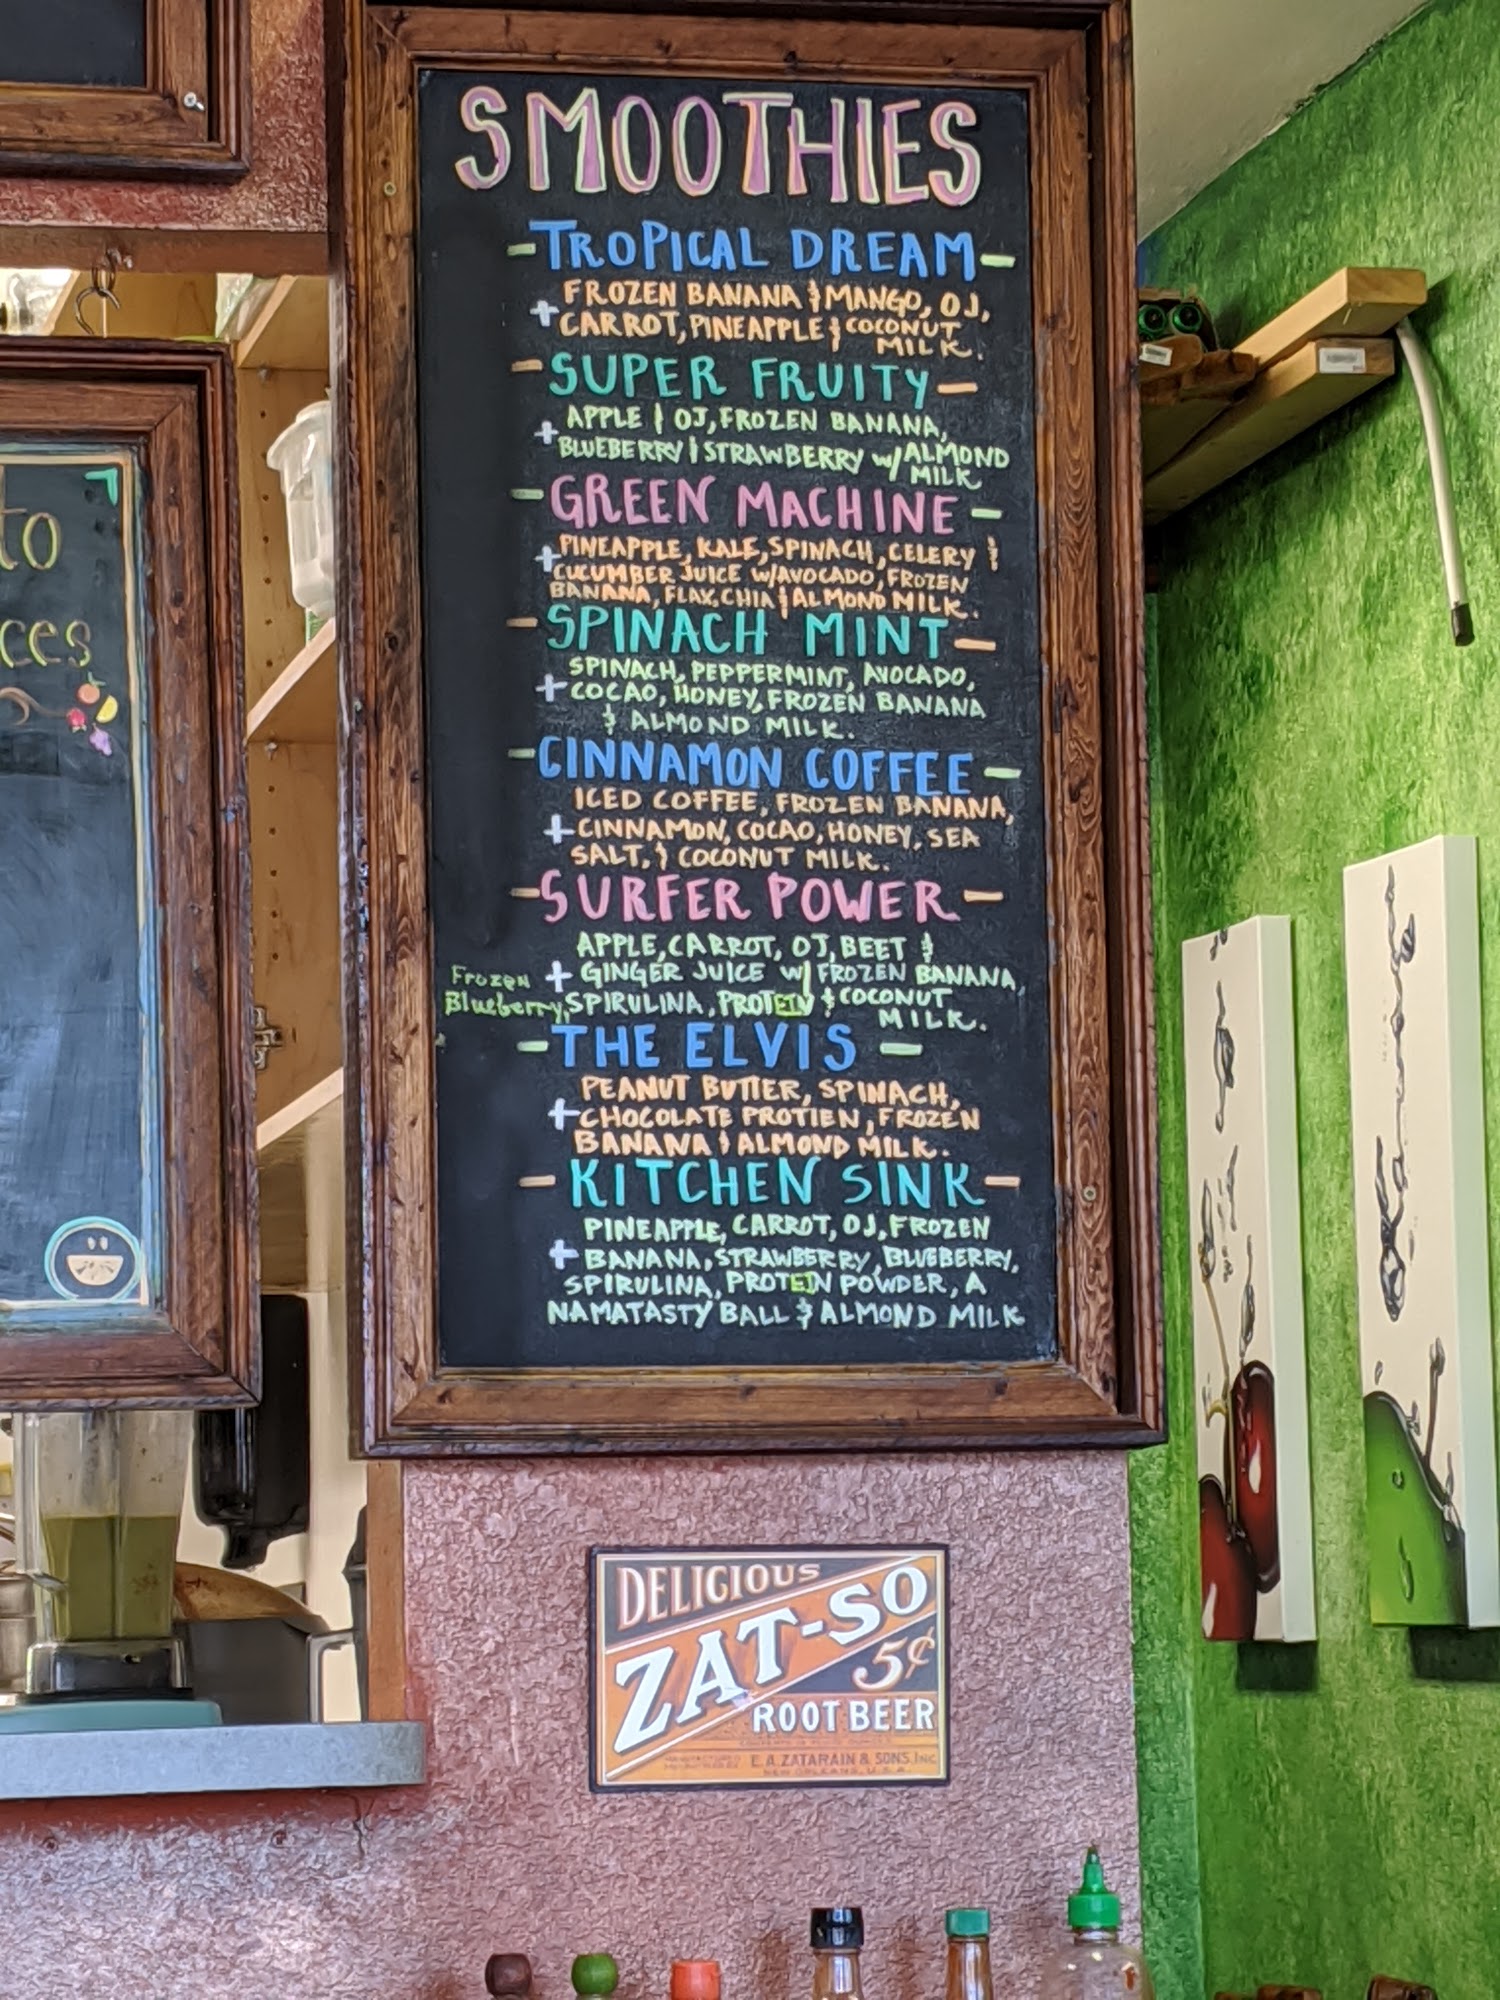 SMOOTHIES
-TROPICAL DREAM-
FROZEN BANANA & MANGO, OJ,
+ CARROT, PINEAPPLE & COCONUT
MILK.
-SUPER FRUITY-
APPLE & OJ, FROZEN BANANA,
+ BLUEBERRY & STRAWBERRY w/ ALMOND
MILK
-GREEN MACHINE-
+ PINEAPPLE, KALE, SPINACH, CELERY &
CUCUMBER JUICE w/AVOCADO, FROZEN
BANANA, FLAX, CHIA & ALMOND MILK.
-SPINACH MINT-
SPINACH, PEPPERMINT, AVOCADO,
+ COCAO, HONEY, FROZEN BANANA
& ALMOND MILK.
-CINNAMON COFFEE-
ICED COFFEE, FROZEN BANANA,
+ CINNAMON, COCAO, HONEY, SEA
SALT, & COCONUT MILK.
-SURFER POWER-
APPLE, CARROT, OJ, BEET &
+ GINGER JUICE w/ FROZEN BANANA,
Frozen
Blueberry, SPIRULINA, PROTEIN & COCONUT
MILK.
-THE ELVIS-
PEANUT BUTTER, SPINACH,
+ CHOCOLATE PROTIEN, FROZEN
BANANA & ALMOND MILK.
-KITCHEN SINK-
PINEAPPLE, CARROT, OJ, FROZEN
+ BANANA, STRAWBERRY, BLUEBERRY,
SPIRULINA, PROTEIN POWDER, A
NAMATASTY BALL & ALMOND MILK
to
ces
DELICIOUS
ZAT-SO
5¢
ROOT BEER
E. A. ZATARAIN & SONS, Inc.
NEW ORLEANS, U.S.A.